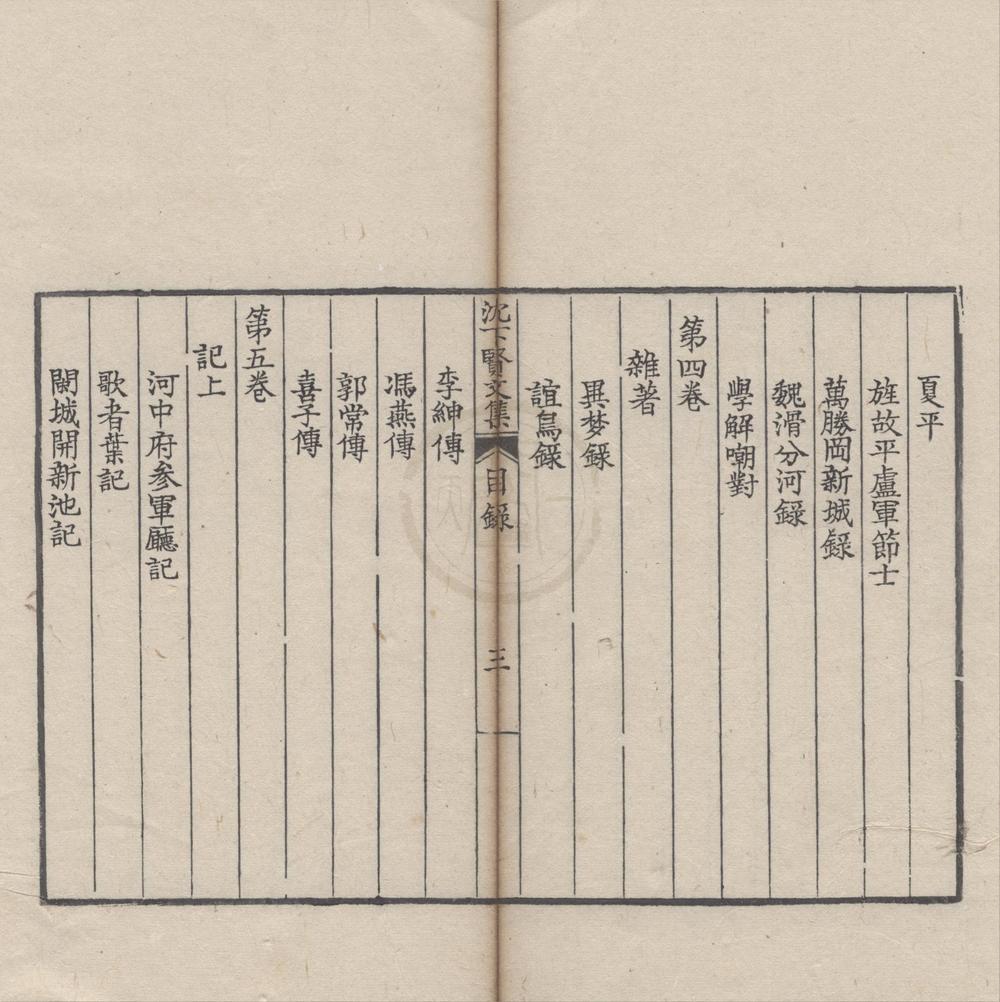 夏平
旌故平盧軍節士
萬勝岡新城錄
魏滑分河錄
學解嘲對
第四卷
雜著
異梦錄
誼鳥錄
沈下賢文集
目錄
三
李紳傳
馮燕傳
郭常傳
喜子傳
第五卷
記上
河中府参軍廳記
歌者葉記
閿城開新池記